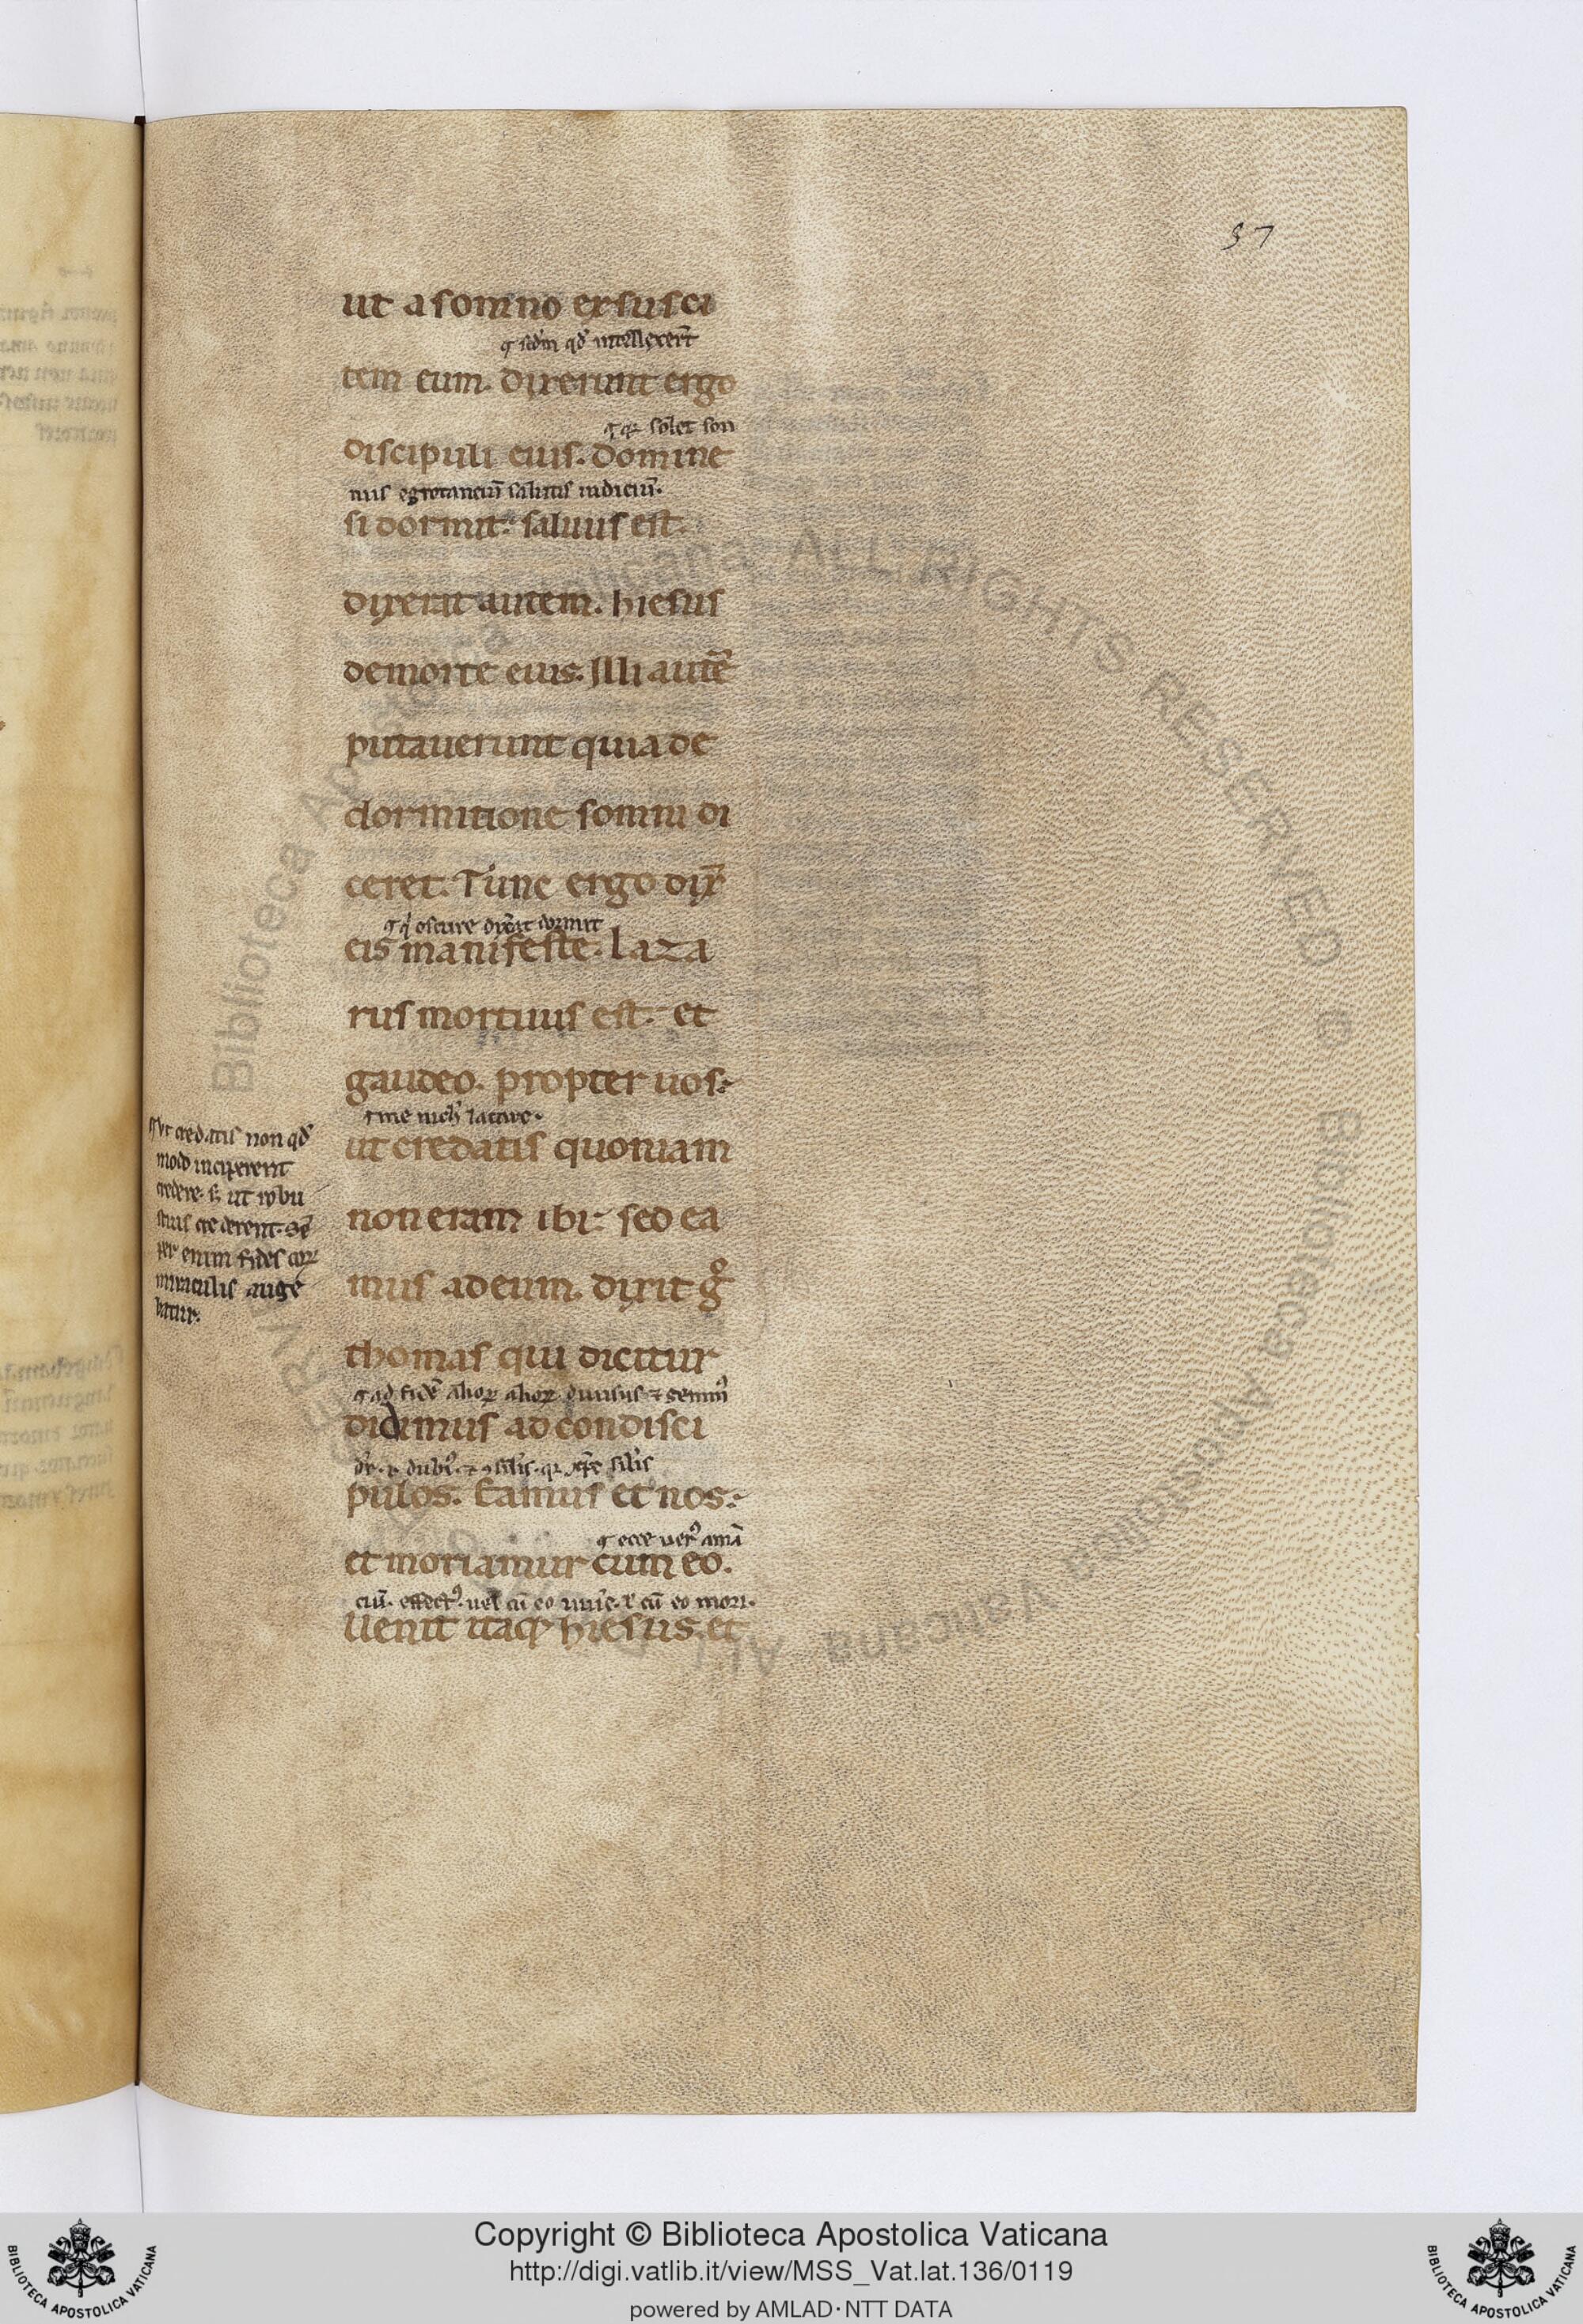 37
ut a somno exsusci
q scdm qd intellexert
tem eum. dixerunt ergo
q qr solet son
discipuli eius. Domine
nus egrotanciū salutis indiciū.
si dormit. saluus est.
dixerat autem. hiesus
demorte eius. Illi autē
putauerunt quia de
dormitione somni di
ceret. Tunc ergo dix̄
oscure dormit
eis manifeste. laza
rus mortuus est. et
gaudeo. propter uos.
me latere.
ut credatis quoniam
ut credatis non qd
modo inciperent
credere. s; ut robu
stius crederent. Sē
per enim fides eoꝝ
miraculis auge
batur.
non eram ibi. sed ea
mus ad eum. dixit g̊
thomas qui dicitur
ad fidē alioꝝ alioꝝ diuisus
didimus ad condisci
pulos. Eamus et nos.
ecce uerꝰ amā
et moriamur cum eo.
ciū. effectꝰ. uel cū eo cū eo mori.
Uenit itaqꝫ hiesus. et
Biblioteca Apostolica Vaticana ALL RIGHTS RESERVED © Biblioteca Apostolica Vaticana ALL
Copyright © Biblioteca Apostolica Vaticana
http://digi.vatlib.it/view/MSS_Vat.lat.136/0119
powered by AMLAD·NTT DATA
BIBLIOTECA APOSTOLICA VATICANA
BIBLIOTECA APOSTOLICA VATICANA